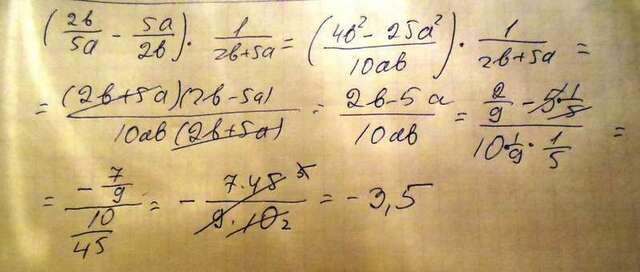 (2b/5a - 5a/2b) · 1/2b+5a = (4b² - 25a²/10ab) · 1/2b+5a =
= (2b+5a)(2b-5a)/10ab(2b+5a) = 2b-5a/10ab = 2/9 - 5·1/5 / 10·1/9·1/5 =
= -7/9 / 10/45 = - 7·45 5/9·10 2 = -3,5